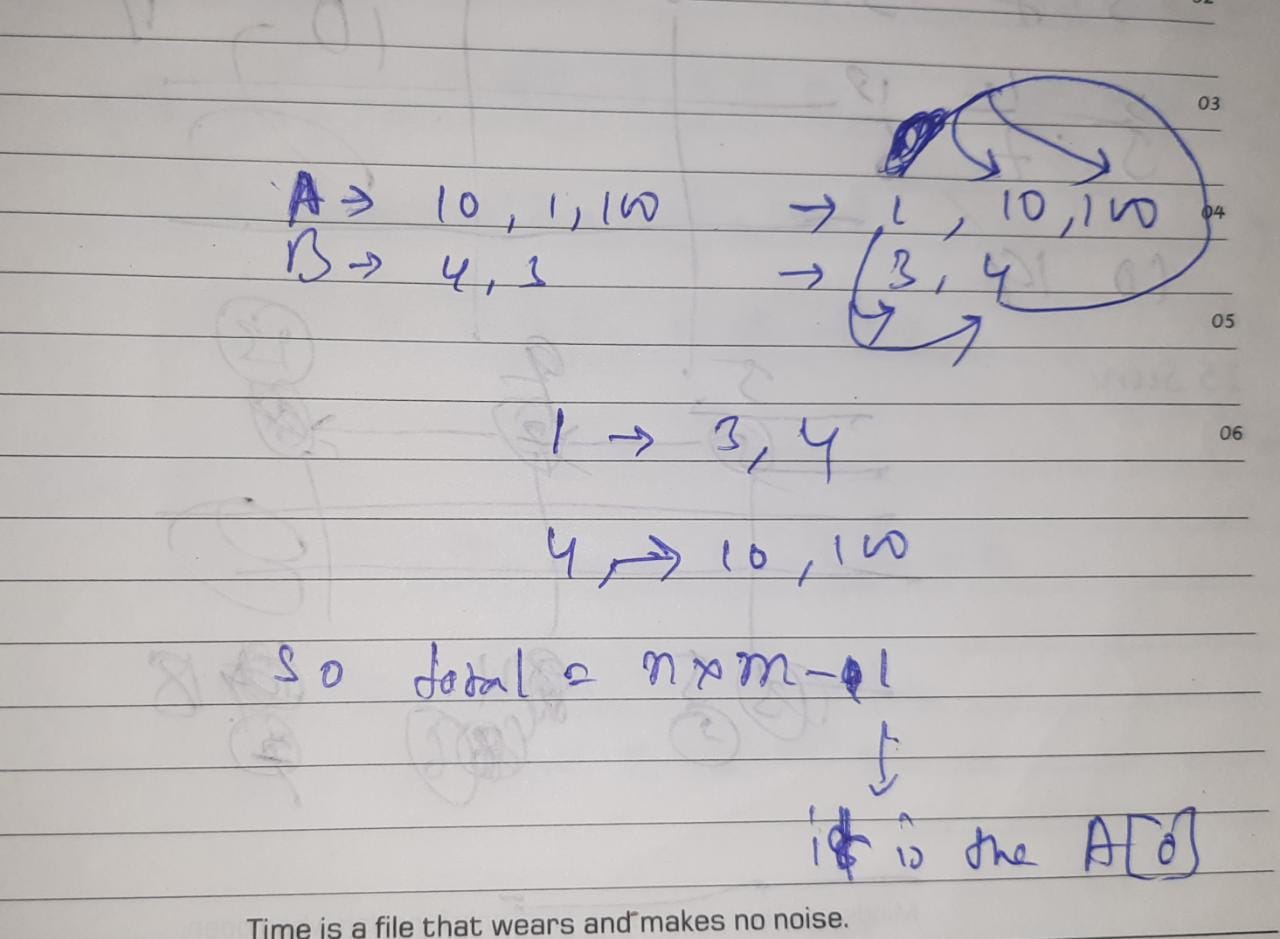 03
A → 10, 1, 100 → 1, 10, 100
04
B → 4, 3 → 3, 4
05
1 → 3, 4
06
4, → 10, 100
So total = n x m - 1
it is the A[0]
Time is a file that wears and makes no noise.